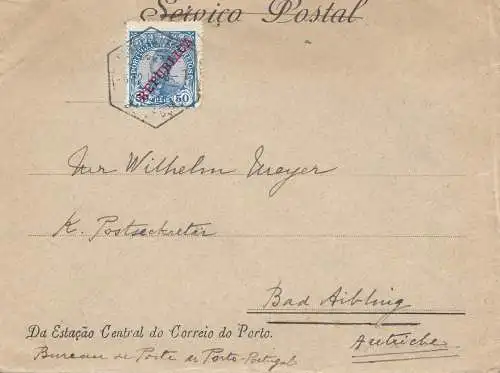 Serviço Postal
PORTUGAL CORREIOS
REPUBLICA
50 REIS 50
Herr Wilhelm Mayer
K. Postsekretär
Bad Aibling
Autriche
Da Estação Central do Correio do Porto.
Bureau de Poste de Porto-Portugal